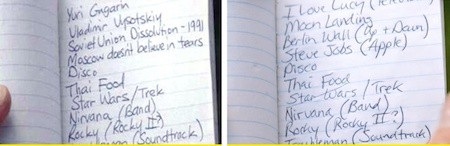 Yuri Gagarin
Vladimir Vysotskiy
Soviet Union Dissolution - 1991
Moscow doesn't believe in tears
Disco
Thai Food
Star Wars / Trek
Nirvana (Band)
Rocky (Rocky II?)
(Soundtrack)
I Love Lucy
Moon Landing
Berlin Wall (Up + Down)
Steve Jobs (Apple)
Disco
Thai Food
Star Wars / Trek
Nirvana (Band)
Rocky (Rocky II?)
(Soundtrack)